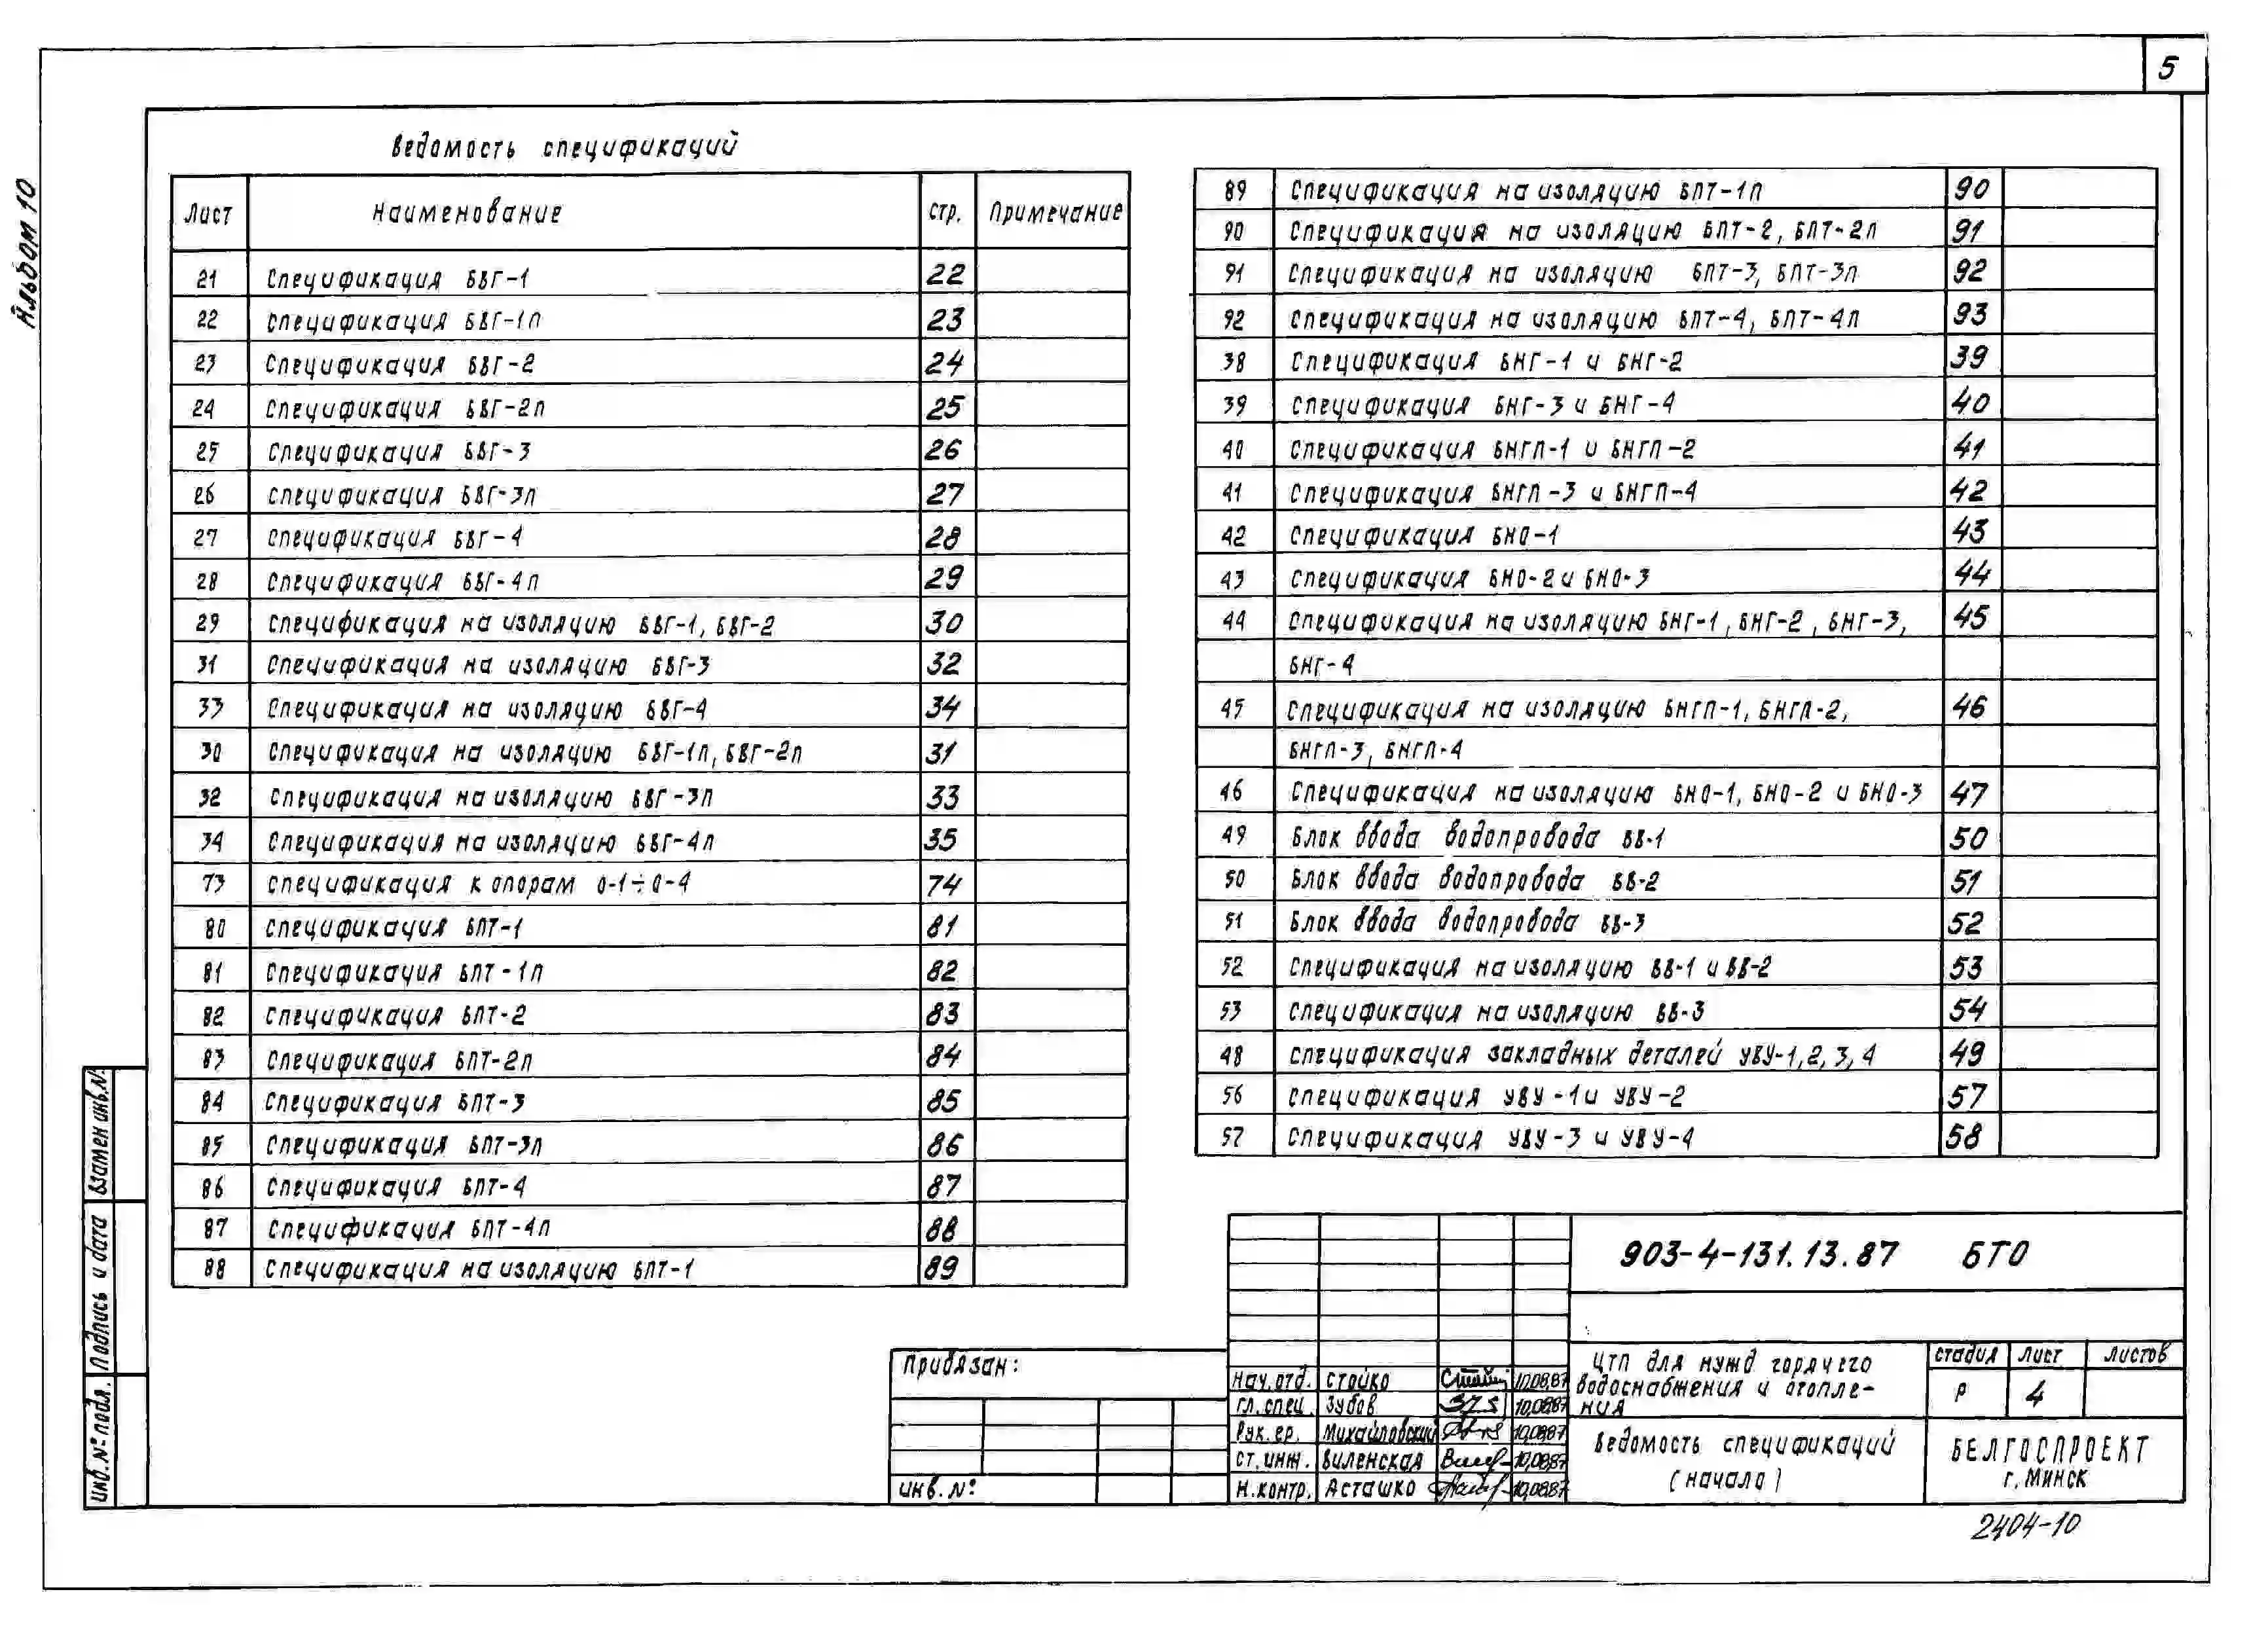 5
Альбом 10
Ведомость спецификаций
Лист Наименование стр. Примечание
21 Спецификация БВГ-1 22
22 Спецификация БВГ-1п 23
23 Спецификация БВГ-2 24
24 Спецификация БВГ-2п 25
25 Спецификация БВГ-3 26
26 Спецификация БВГ-3п 27
27 Спецификация БВГ-4 28
28 Спецификация БВГ-4п 29
29 Спецификация на изоляцию БВГ-1, БВГ-2 30
31 Спецификация на изоляцию БВГ-3 32
33 Спецификация на изоляцию БВГ-4 34
30 Спецификация на изоляцию БВГ-1п, БВГ-2п 31
32 Спецификация на изоляцию БВГ-3п 33
34 Спецификация на изоляцию БВГ-4п 35
73 Спецификация к опорам О-1÷О-4 74
80 Спецификация БПТ-1 81
81 Спецификация БПТ-1п 82
82 Спецификация БПТ-2 83
83 Спецификация БПТ-2п 84
84 Спецификация БПТ-3 85
85 Спецификация БПТ-3п 86
86 Спецификация БПТ-4 87
87 Спецификация БПТ-4п 88
88 Спецификация на изоляцию БПТ-1 89
89 Спецификация на изоляцию БПТ-1п 90
90 Спецификация на изоляцию БПТ-2, БПТ-2п 91
91 Спецификация на изоляцию БПТ-3, БПТ-3п 92
92 Спецификация на изоляцию БПТ-4, БПТ-4п 93
38 Спецификация БНГ-1 и БНГ-2 39
39 Спецификация БНГ-3 и БНГ-4 40
40 Спецификация БНГП-1 и БНГП-2 41
41 Спецификация БНГП-3 и БНГП-4 42
42 Спецификация БНО-1 43
43 Спецификация БНО-2 и БНО-3 44
44 Спецификация на изоляцию БНГ-1, БНГ-2, БНГ-3, 45
БНГ-4
45 Спецификация на изоляцию БНГП-1, БНГП-2, 46
БНГП-3, БНГП-4
46 Спецификация на изоляцию БНО-1, БНО-2 и БНО-3 47
49 Блок ввода водопровода ВВ-1 50
50 Блок ввода водопровода ВВ-2 51
51 Блок ввода водопровода ВВ-3 52
52 Спецификация на изоляцию ВВ-1 и ВВ-2 53
53 Спецификация на изоляцию ВВ-3 54
48 Спецификация закладных деталей УВУ-1,2,3,4 49
56 Спецификация УВУ-1 и УВУ-2 57
57 Спецификация УВУ-3 и УВУ-4 58
Взамен инв.№
Подпись и дата
Инв.№ подл.
Привязан:
Инв.№
903-4-131.13.87 БТО
Нач.отд. Стойко 10.08.87
Гл.спец. Зубов 10.08.87
Рук.гр. Михайловский 10.08.87
Ст.инж. Виленская 10.08.87
Н.контр. Асташко 10.08.87
ЦТП для нужд горячего
водоснабжения и отопле-
ния
Стадия Лист Листов
Р 4
Ведомость спецификаций
(начало)
БЕЛГОСПРОЕКТ
г. Минск
2404-10